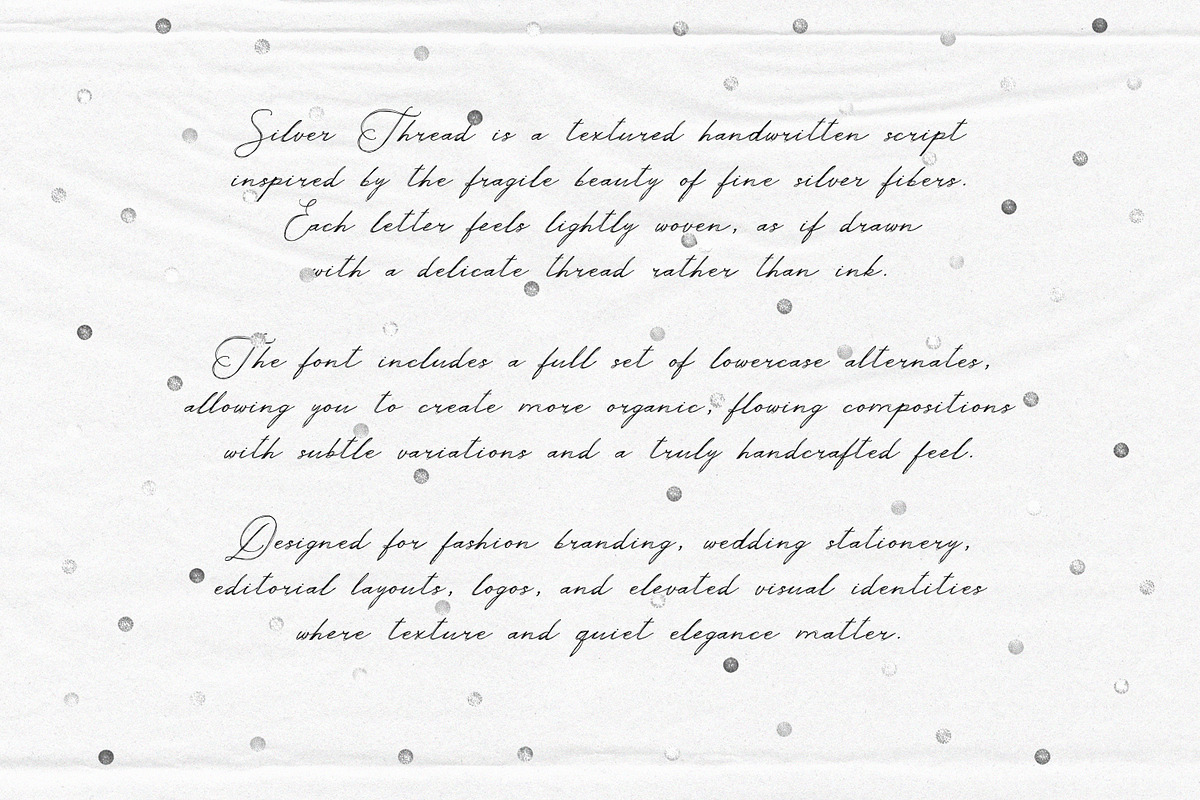 Silver Thread is a textured handwritten script
inspired by the fragile beauty of fine silver fibers.
Each letter feels lightly woven, as if drawn
with a delicate thread rather than ink.
The font includes a full set of lowercase alternates,
allowing you to create more organic, flowing compositions
with subtle variations and a truly handcrafted feel.
Designed for fashion branding, wedding stationery,
editorial layouts, logos, and elevated visual identities
where texture and quiet elegance matter.